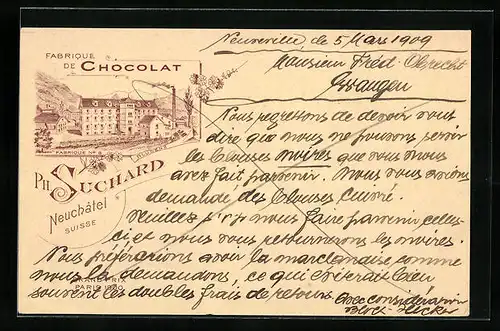 FABRIQUE
DE CHOCOLAT
FABRIQUE Nº
PH. SUCHARD
Neuchâtel
SUISSE
GRAND PRIX
PARIS 1900
Neuveville, le 5 Mars 1909
Monsieur Fréd. Obrecht
Wangen
Nous regrettons de devoir vous
dire que nous ne pouvons servir
les blouses noires que vous nous
avez fait parvenir. Nous vous avions
demandé des blouses
Veuillez s.v.p. nous faire parvenir celles-
ci et nous vous retournerons les noires.
Nous préférerions avoir la marchandise comme
nous la demandons, ce qui éviterait bien
souvent les doubles frais de retours. Avec considération